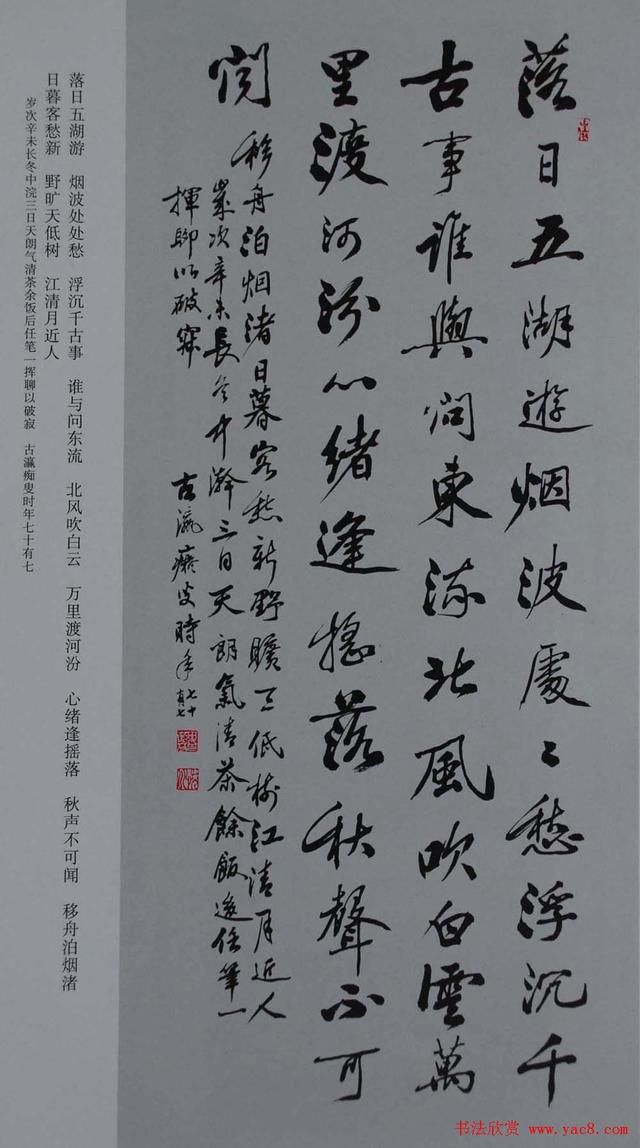 落日五湖遊烟波處〻愁浮沉千
古事誰與問東流北風吹白雲萬
里渡河汾心緒逢搖落秋聲不可
聞移舟泊烟渚日暮客愁新野曠天低樹江清月近人
歲次辛未長冬中浣三日天朗氣清茶餘飯後任筆一
揮聊以破寂
古瀛痴叟時年七十有七
落日五湖游 烟波处处愁 浮沉千古事 谁与问东流 北风吹白云 万里渡河汾 心绪逢摇落 秋声不可闻 移舟泊烟渚
日暮客愁新 野旷天低树 江清月近人
岁次辛未长冬中浣三日天朗气清茶余饭后任笔一挥聊以破寂 古瀛痴叟时年七十有七
书法欣赏 www.yac8.com